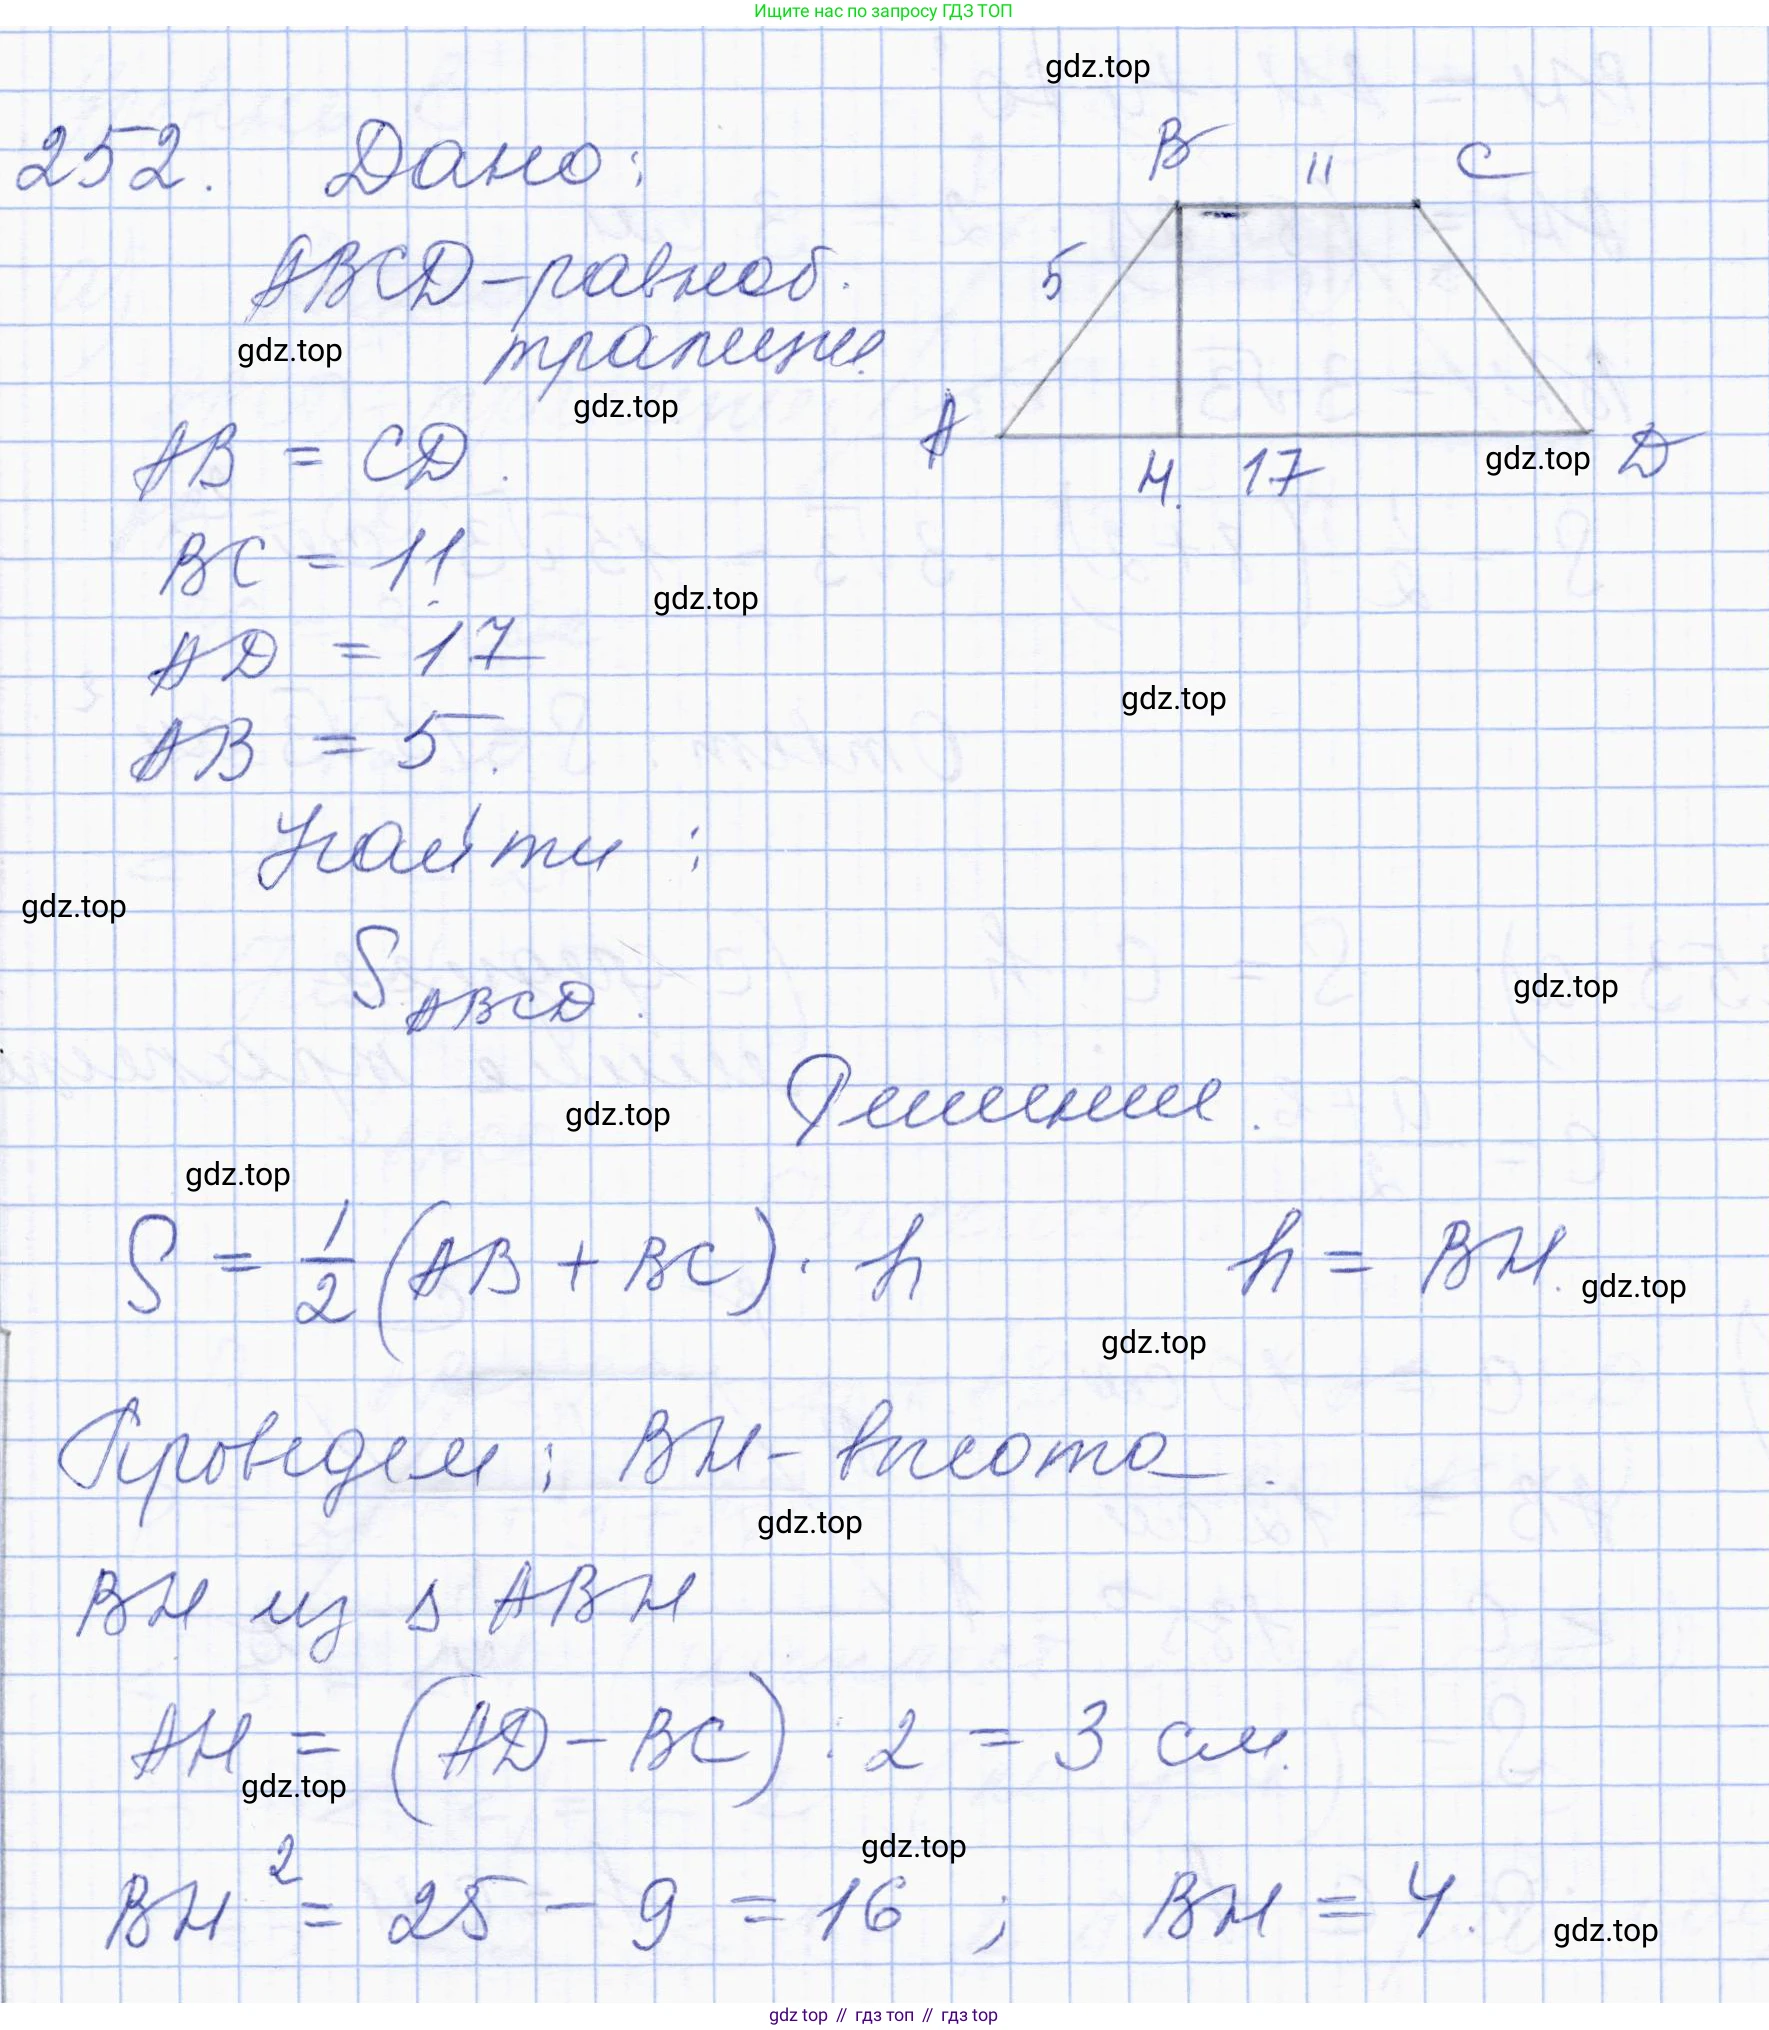 Ищите нас по запросу ГДЗ ТОП
gdz.top
252. Дано:
B 11 C
ABCD - равноб.
трапеция.
5
gdz.top
gdz.top
A H. 17 D
gdz.top
AB = CD.
BC = 11.
gdz.top
AD = 17
gdz.top
AB = 5.
Найти:
gdz.top
S ABCD.
gdz.top
Решение.
gdz.top
gdz.top
S = 1/2 (AB + BC) · h h = BH.
gdz.top
gdz.top
Проведем: BH - высота.
gdz.top
BH из Δ ABH
AH = (AD - BC) : 2 = 3 см.
gdz.top
gdz.top
BH² = 25 - 9 = 16 ; BH = 4.
gdz.top
gdz top // гдз топ // гдз top